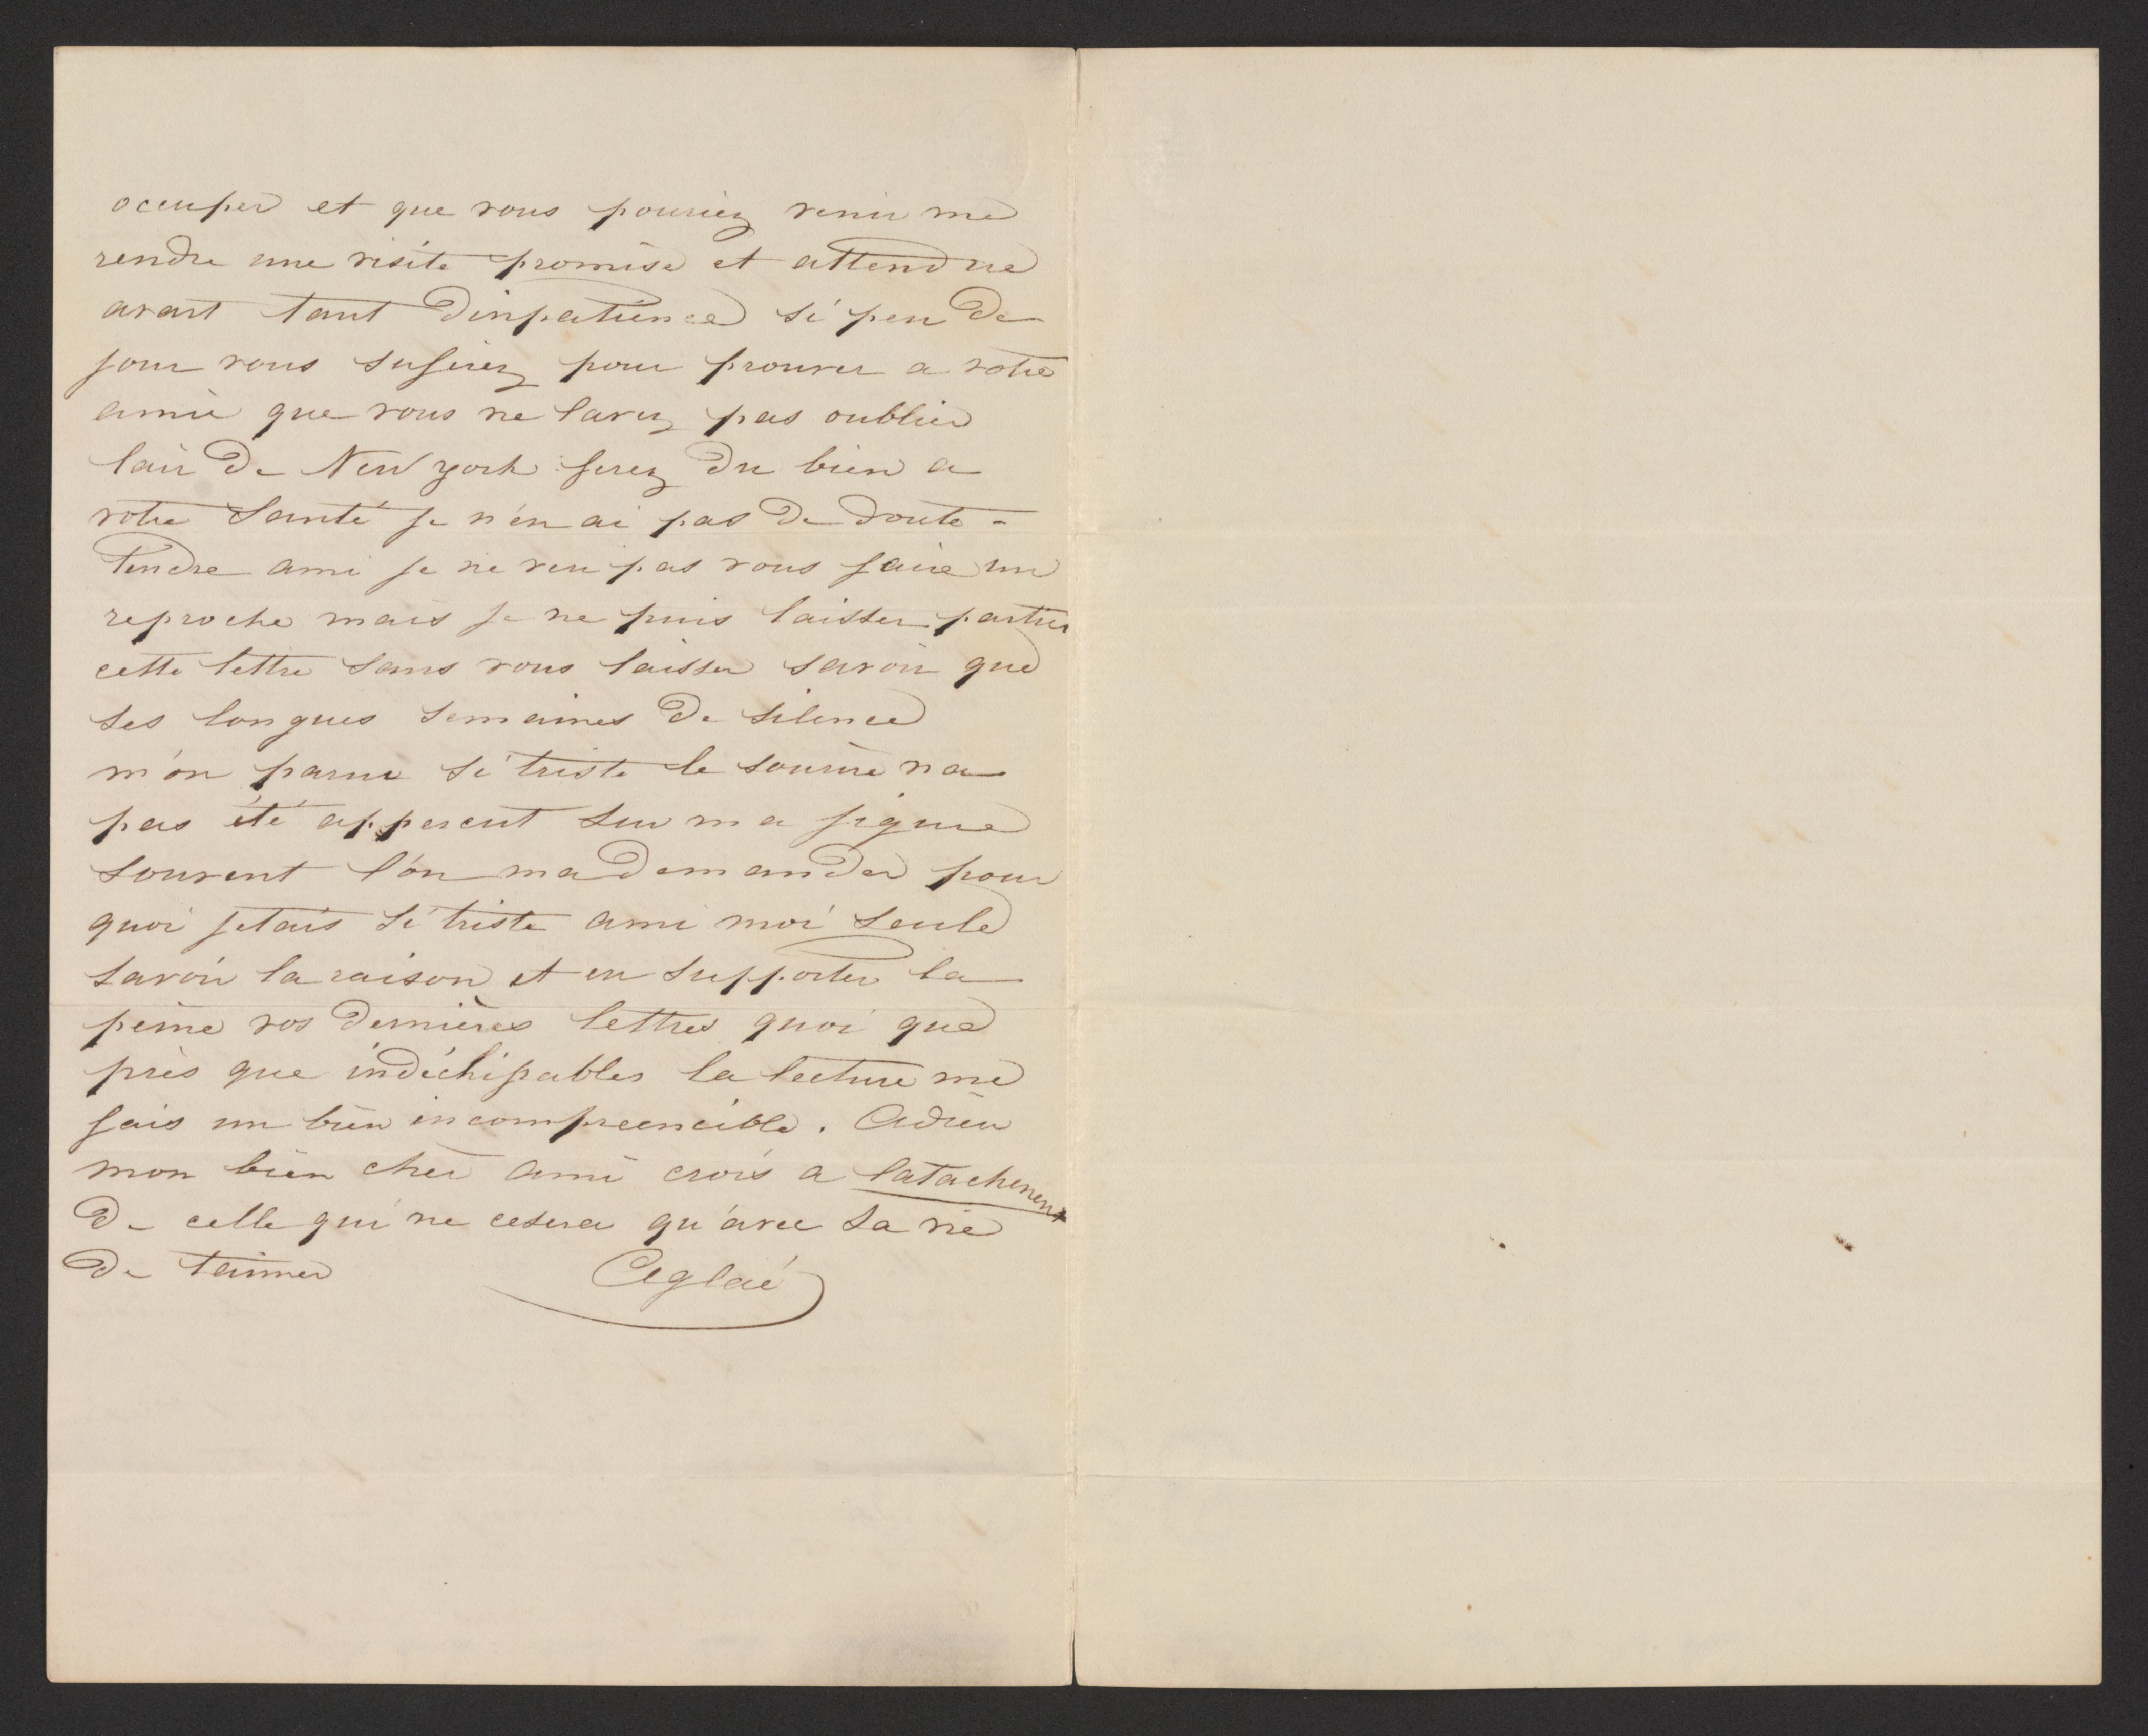 occuper et que vous pouriez venir me
rendre une visite promise et attendue
avant tant dinpatience si peu de
jour vous sufirez pour prouver a votre
amie que vous ne lavez pas oublier
lair de New york ferez du bien a
votre santé je n'en ai pas de doute -
Tendre ami je ne veu pas vous faire un
reproche mais je ne puis laisser partir
cette lettre sans vous laisser savoir que
ses longues semaines de silence
m'on paru si triste le sourire na
pas été apperceut sur ma figure
souvent l'on ma demander pour
quoi jetais si triste ami moi seule
savoir la raison et en supporter la
peine vos dernières lettres quoi que
près que indéchifables la lecture me
fais un bien incompreencible. Adieu
mon bien cher ami crois a latachement
de celle qui ne cesera qu'avec sa vie
de taimer Aglaé